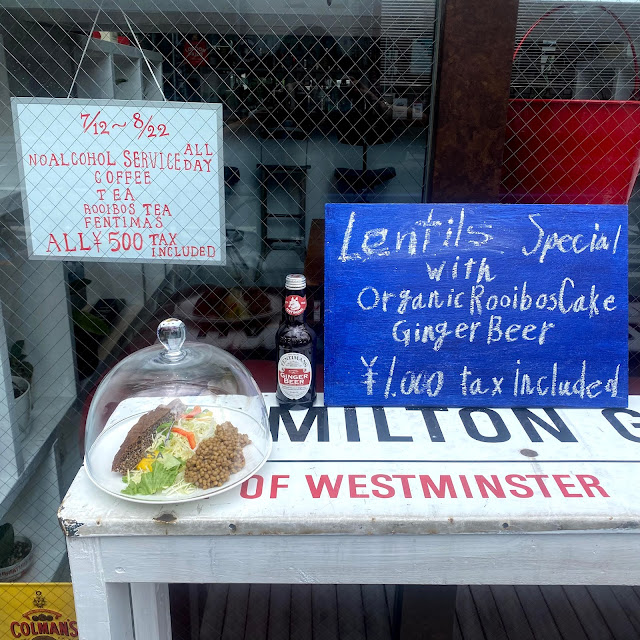 7/12~8/22
NOALCOHOL SERVICE ALL DAY
COFFEE
TEA
ROOIBOS TEA
FENTIMAS
ALL ¥500 TAX INCLUDED
Lentils Special
with
Organic Rooibos Cake
Ginger Beer
¥1.000 tax included
FENTIMANS
GINGER
BEER
MILTON G
OF WESTMINSTER
COLMAN'S